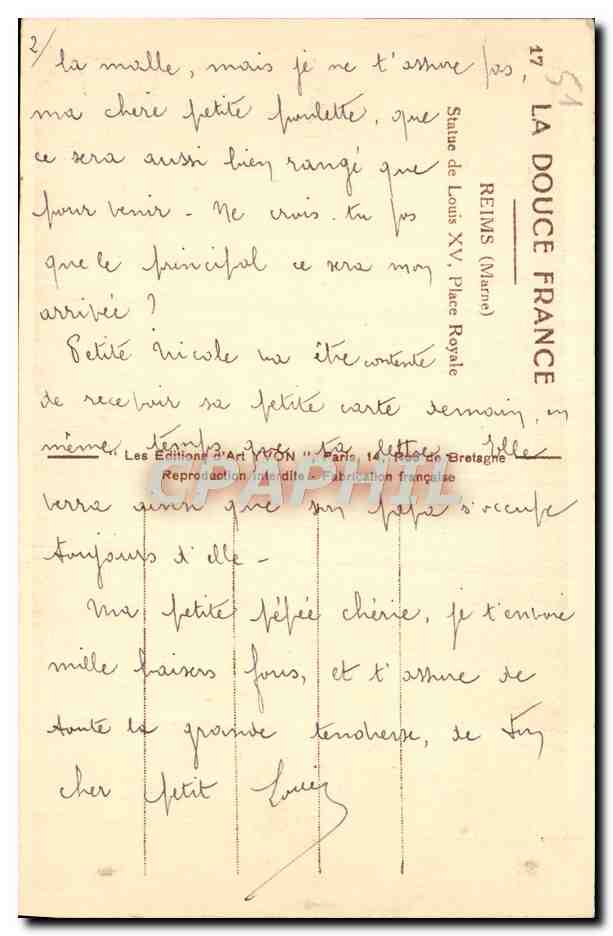 2/
la malle, mais je ne t'assure pas,
ma chère petite poulette, que
ce sera aussi bien rangé que
pour venir - Ne crois-tu pas
que le principal ce sera mon
arrivée ?
Petite Nicole va être contente
de recevoir sa petite carte demain, en
même temps que ta lettre. Elle
verra ainsi que son papa s'occupe
toujours d'elle -
Ma petite pépée chérie, je t'envoie
mille baisers fous, et t'assure de
toute la grande tendresse, de ton
cher petit Louis
17 LA DOUCE FRANCE
51
REIMS (Marne)
Statue de Louis XV, Place Royale
" Les Editions d'Art YVON ", Paris, 14, Rue de Bretagne
Reproduction interdite - Fabrication française
CPAPHIL